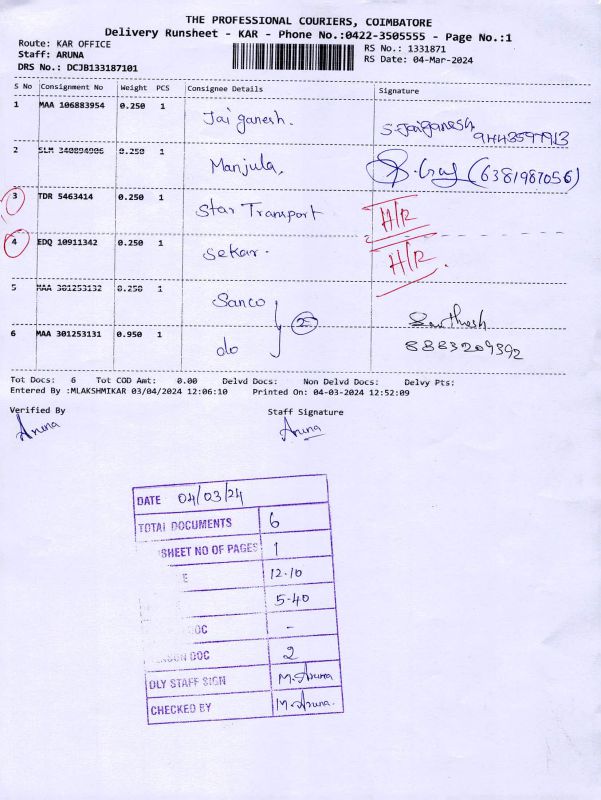 THE PROFESSIONAL COURIERS, COIMBATORE
Delivery Runsheet - KAR - Phone No.:0422-3505555 - Page No.:1
Route: KAR OFFICE
RS No.: 1331871
Staff: ARUNA
RS Date: 04-Mar-2024
DRS No.: DCJB133187101
S No Consignment No Weight PCS Consignee Details Signature
1 MAA 106883954 0.250 1 Jai ganesh. S.Jaiganesh
2 SLM 340894906 0.250 1 Manjula, (6381987056)
3 TDR 5463414 0.250 1 Star Transport H/R
4 EDQ 10911342 0.250 1 Sekar. H/R.
5 MAA 301253132 0.250 1 Sanco
2
6 MAA 301253131 0.950 1 do 8883209392
Tot Docs: 6 Tot COD Amt: 0.00 Delvd Docs: Non Delvd Docs: Delvy Pts:
Entered By :MLAKSHMIKAR 03/04/2024 12:06:10 Printed On: 04-03-2024 12:52:09
Verified By Staff Signature
Aruna Aruna
DATE 04/03/24
TOTAL DOCUMENTS 6
SHEET NO OF PAGES 1
E 12-10
5-40
OC -
DOC 2
DLY STAFF SIGN M.Aruna
CHECKED BY M.Aruna.